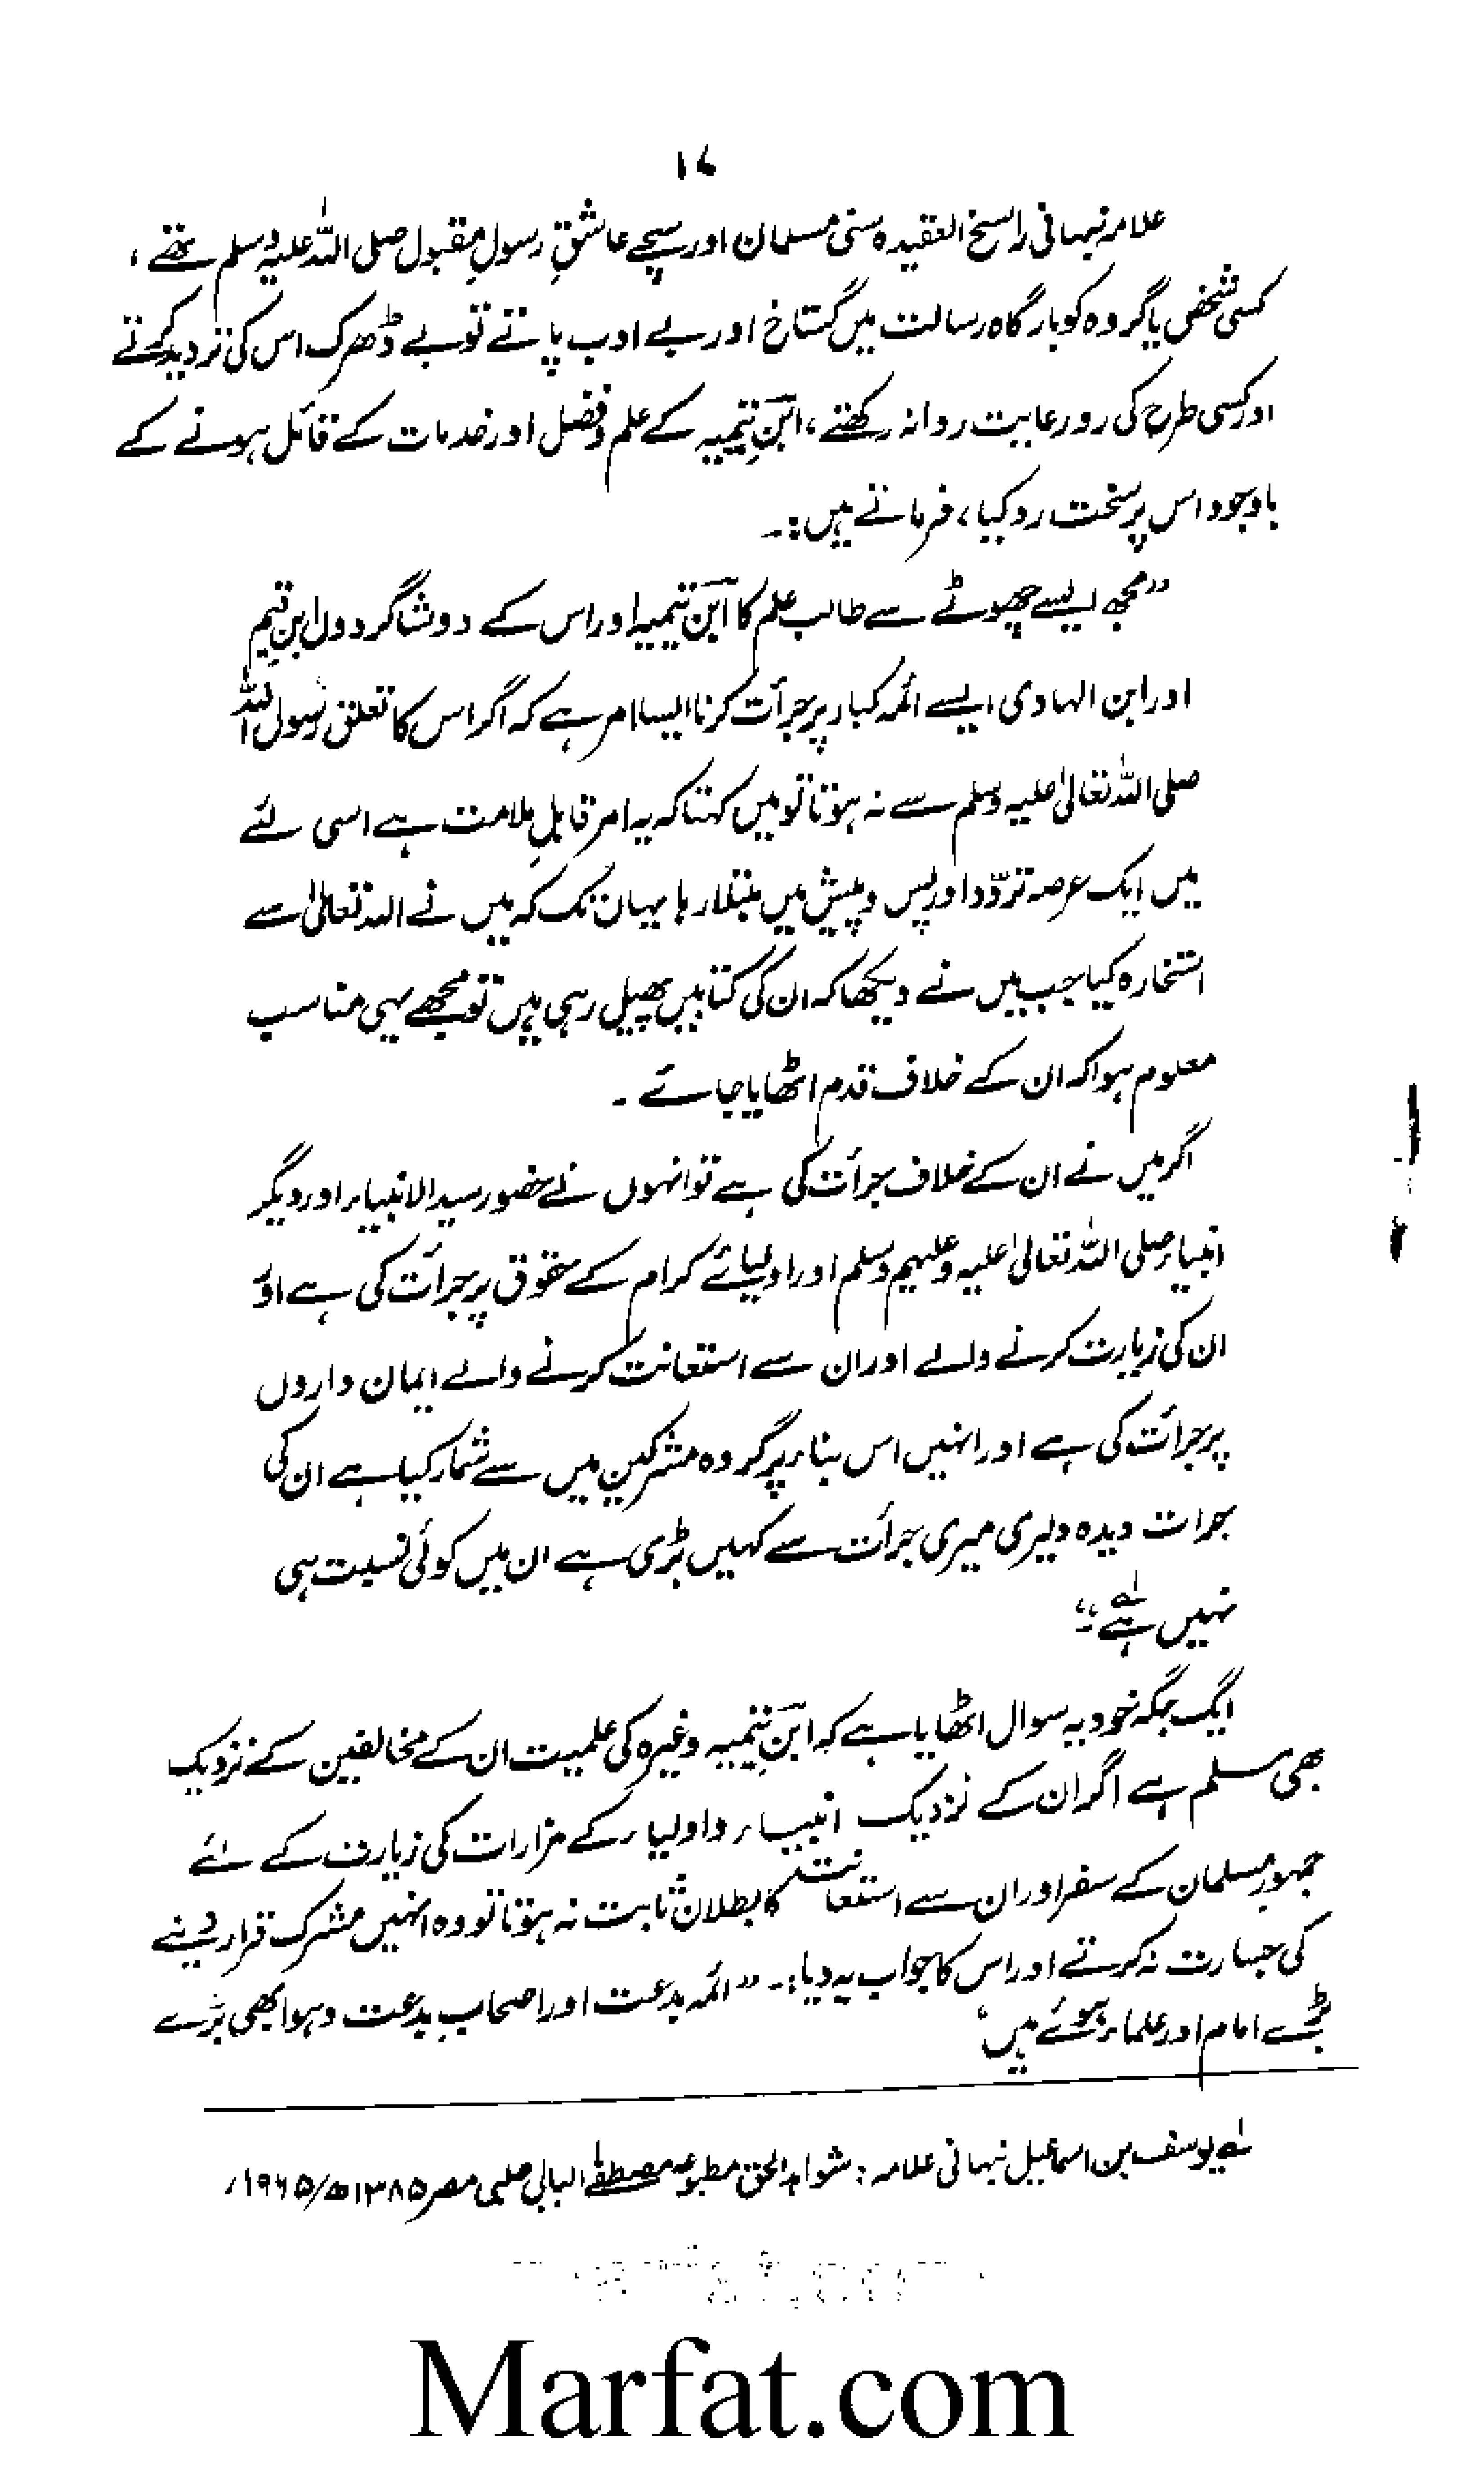 ۱۷
علامہ نبہانی راسخ العقیدہ سنی مسلمان اور سچے عاشقِ رسولِ مقبول صلی اللہ علیہ وسلم تھے،
کسی شخص یا گروہ کو بارگاہ رسالت میں گستاخ اور بے ادب پاتے تو بے دھڑک اس کی تردید کرتے
اور کسی طرح کی رو رعایت روا نہ رکھتے، ابنِ تیمیہ کے علم و فضل اور خدمات کے قائل ہونے کے
باوجود اس پر سخت رد کیا، فرماتے ہیں:۔
”مجھ ایسے چھوٹے سے طالب علم کا ابن تیمیہ اور اس کے دو شاگردوں ابن قیم
اور ابن الہادی ایسے ائمہ کبار پر جرأت کرنا ایسا امر ہے کہ اگر اس کا تعلق رسول اللہ
صلی اللہ تعالیٰ علیہ وسلم سے نہ ہوتا تو میں کہتا کہ یہ امر قابلِ ملامت ہے اسی لئے
میں ایک عرصہ تردّد اور پس و پیش میں مبتلا رہا یہاں تک کہ میں نے اللہ تعالیٰ سے
استخارہ کیا جب میں نے دیکھا کہ ان کی کتابیں پھیل رہی ہیں تو مجھے یہی مناسب
معلوم ہوا کہ ان کے خلاف قدم اٹھایا جائے ۔
اگر میں نے ان کے خلاف جرأت کی ہے تو انہوں نے حضور سید الانبیاء اور دیگر
انبیاء صلی اللہ تعالیٰ علیہ وعلیہم وسلم اور اولیائے کرام کے حقوق پر جرأت کی ہے اور
ان کی زیارت کرنے والے اور ان سے استعانت کرنے والے ایمان داروں
پر جرأت کی ہے اور انہیں اس بناء پر گروہ مشرکین میں سے شمار کیا ہے ان کی
جرات دیدہ دلیری میری جرأت سے کہیں بڑی ہے ان میں کوئی نسبت ہی
نہیں ہے؎۱۔“
ایک جگہ خود یہ سوال اٹھایا ہے کہ ابنِ تیمیہ وغیرہ کی علمیت ان کے مخالفین کے نزدیک
بھی مسلم ہے اگر ان کے نزدیک انبیاء و اولیاء کے مزارات کی زیارت کے لئے
جمہور مسلمان کے سفر اور ان سے استعانت کا بطلان ثابت نہ ہوتا تو وہ انہیں مشرک قرار دینے
کی جسارت نہ کرتے اور اس کا جواب یہ دیا:۔ ”ائمہ بدعت اور اصحابِ بدعت و ہوا بھی بڑے
بڑے امام اور علماء ہوئے ہیں
؎۱ یوسف بن اسماعیل نبہانی علامہ : شواہد الحق مطبوعہ مصطفےٰ البابی حلبی مصر ۱۳۸۵ھ/۱۹۶۵ء
Marfat.com